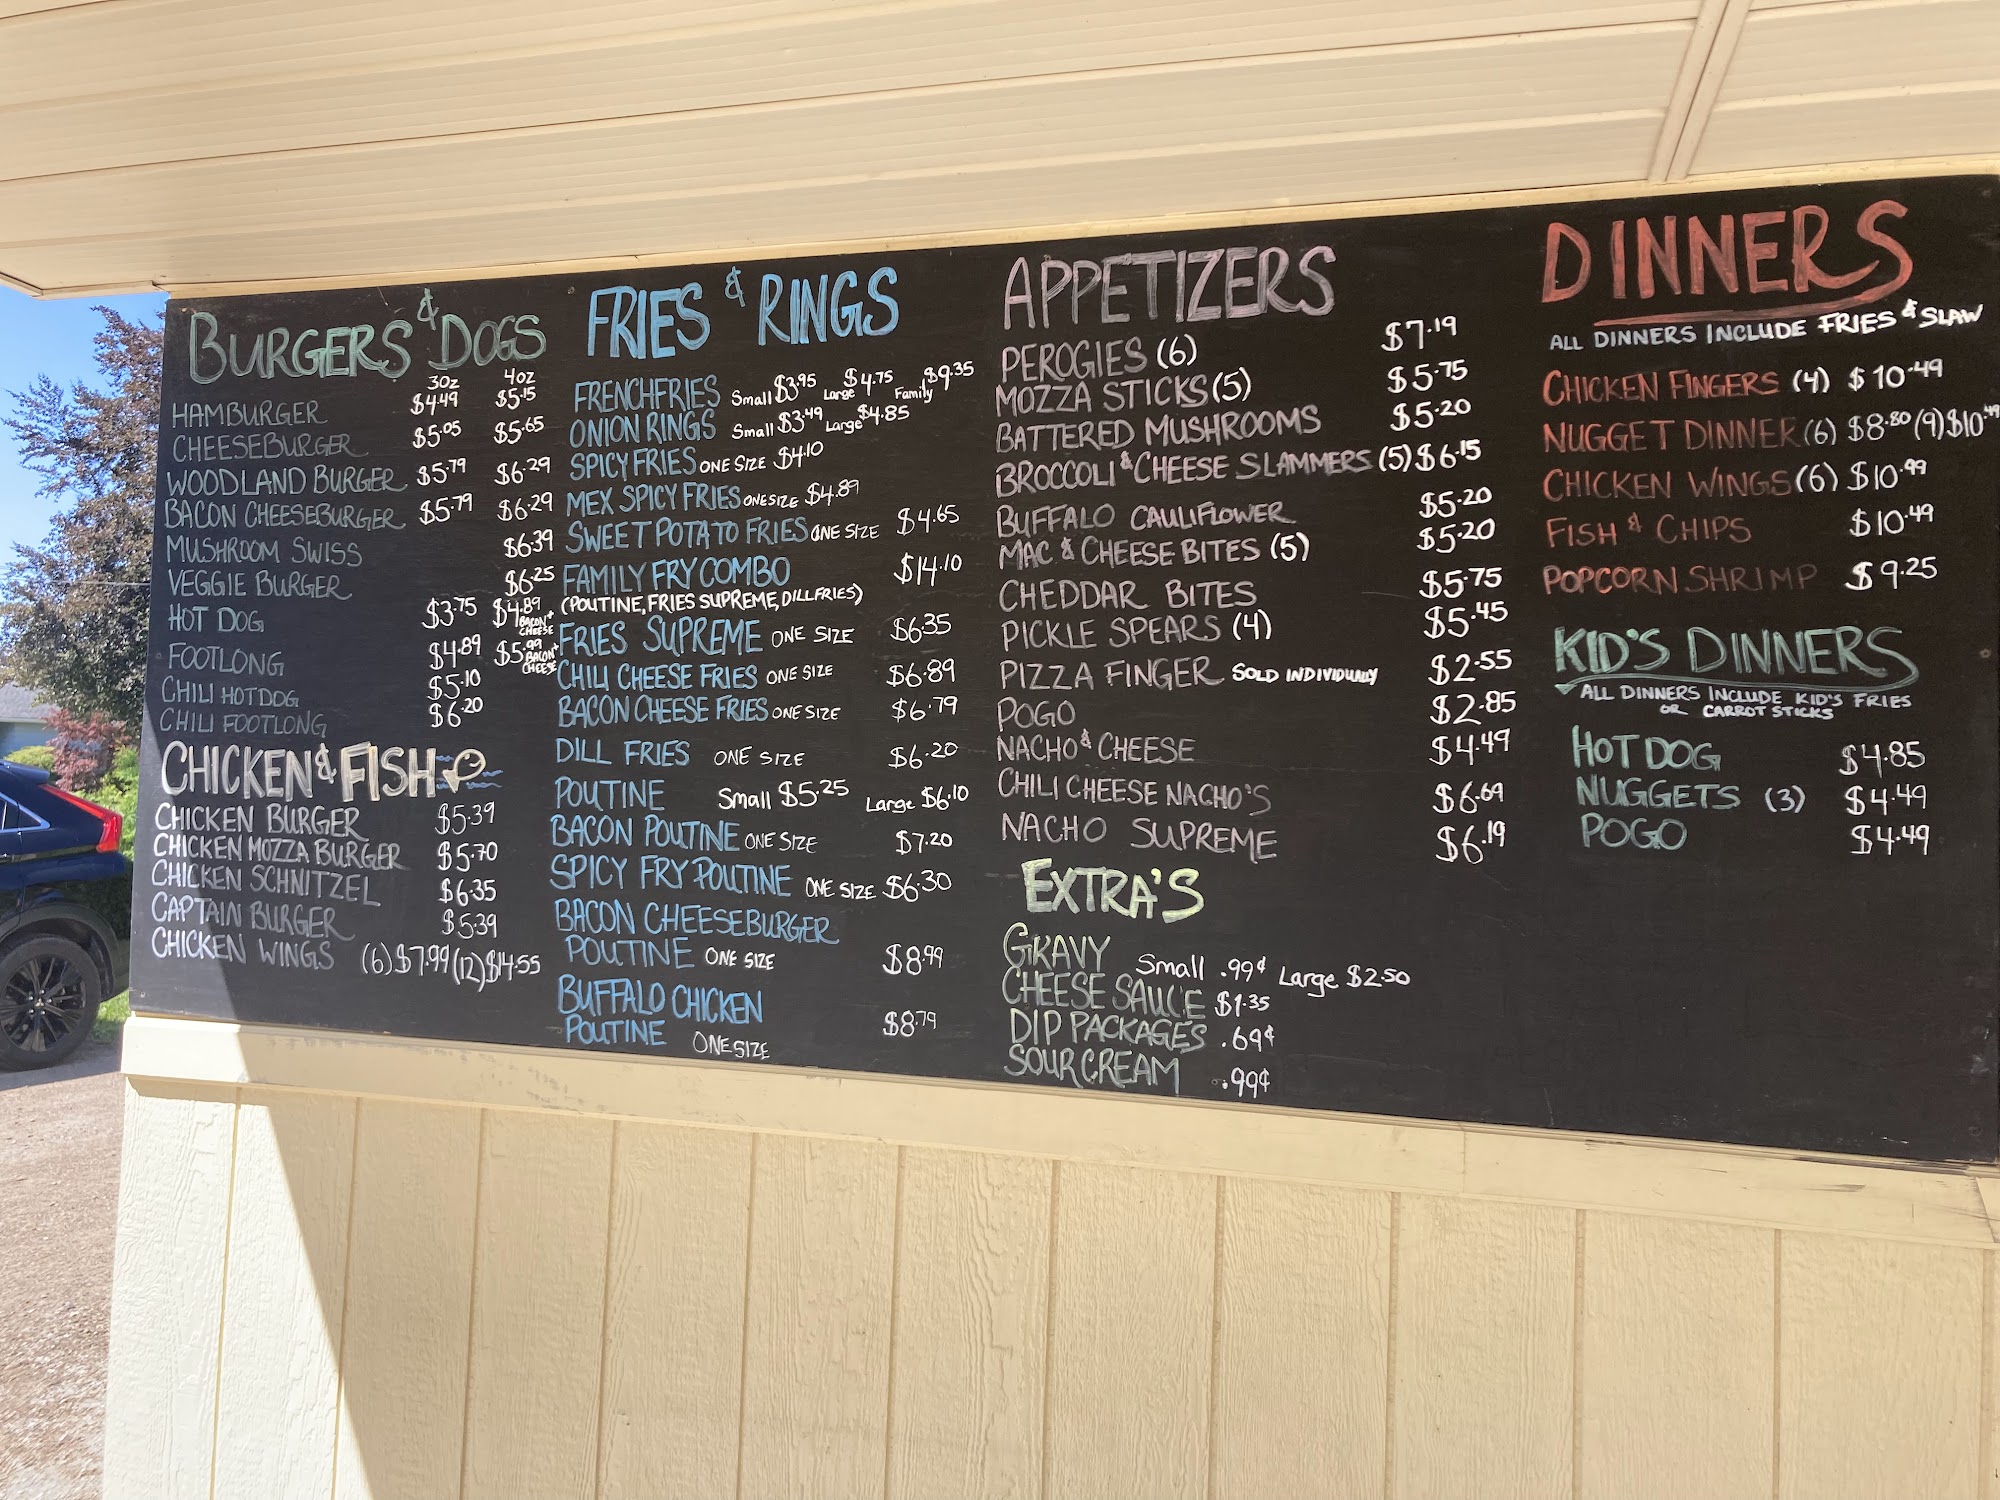 BURGERS & DOGS
3oz 4oz
HAMBURGER $4.49 $5.15
CHEESEBURGER $5.05 $5.65
WOODLAND BURGER $5.79 $6.29
BACON CHEESEBURGER $5.79 $6.29
MUSHROOM SWISS $6.39
VEGGIE BURGER $6.25
HOT DOG $3.75 $4.89 BACON + CHEESE
FOOTLONG $4.89 $5.99 BACON + CHEESE
CHILI HOTDOG $5.10
CHILI FOOTLONG $6.20
CHICKEN & FISH
CHICKEN BURGER $5.39
CHICKEN MOZZA BURGER $5.70
CHICKEN SCHNITZEL $6.35
CAPTAIN BURGER $5.39
CHICKEN WINGS (6) $7.99 (12) $14.55
FRIES & RINGS
FRENCH FRIES Small $3.95 Large $4.75 Family $9.35
ONION RINGS Small $3.49 Large $4.85
SPICY FRIES ONE SIZE $4.10
MEX SPICY FRIES ONE SIZE $4.89
SWEET POTATO FRIES ONE SIZE $4.65
FAMILY FRY COMBO $14.10
(POUTINE, FRIES SUPREME, DILL FRIES)
FRIES SUPREME ONE SIZE $6.35
CHILI CHEESE FRIES ONE SIZE $6.89
BACON CHEESE FRIES ONE SIZE $6.79
DILL FRIES ONE SIZE $6.20
POUTINE Small $5.25 Large $6.10
BACON POUTINE ONE SIZE $7.20
SPICY FRY POUTINE ONE SIZE $6.30
BACON CHEESEBURGER
POUTINE ONE SIZE $8.99
BUFFALO CHICKEN
POUTINE ONE SIZE $8.79
APPETIZERS
PEROGIES (6) $7.19
MOZZA STICKS (5) $5.75
BATTERED MUSHROOMS $5.20
BROCCOLI & CHEESE SLAMMERS (5) $6.15
BUFFALO CAULIFLOWER $5.20
MAC & CHEESE BITES (5) $5.20
CHEDDAR BITES $5.75
PICKLE SPEARS (4) $5.45
PIZZA FINGER SOLD INDIVIDUALLY $2.55
POGO $2.85
NACHO & CHEESE $4.49
CHILI CHEESE NACHO'S $6.69
NACHO SUPREME $6.19
EXTRA'S
GRAVY Small .99¢ Large $2.50
CHEESE SAUCE $1.35
DIP PACKAGES .69¢
SOUR CREAM .99¢
DINNERS
ALL DINNERS INCLUDE FRIES & SLAW
CHICKEN FINGERS (4) $10.49
NUGGET DINNER (6) $8.80 (9) $10.49
CHICKEN WINGS (6) $10.99
FISH & CHIPS $10.49
POPCORN SHRIMP $9.25
KID'S DINNERS
ALL DINNERS INCLUDE KID'S FRIES
OR CARROT STICKS
HOT DOG $4.85
NUGGETS (3) $4.49
POGO $4.49